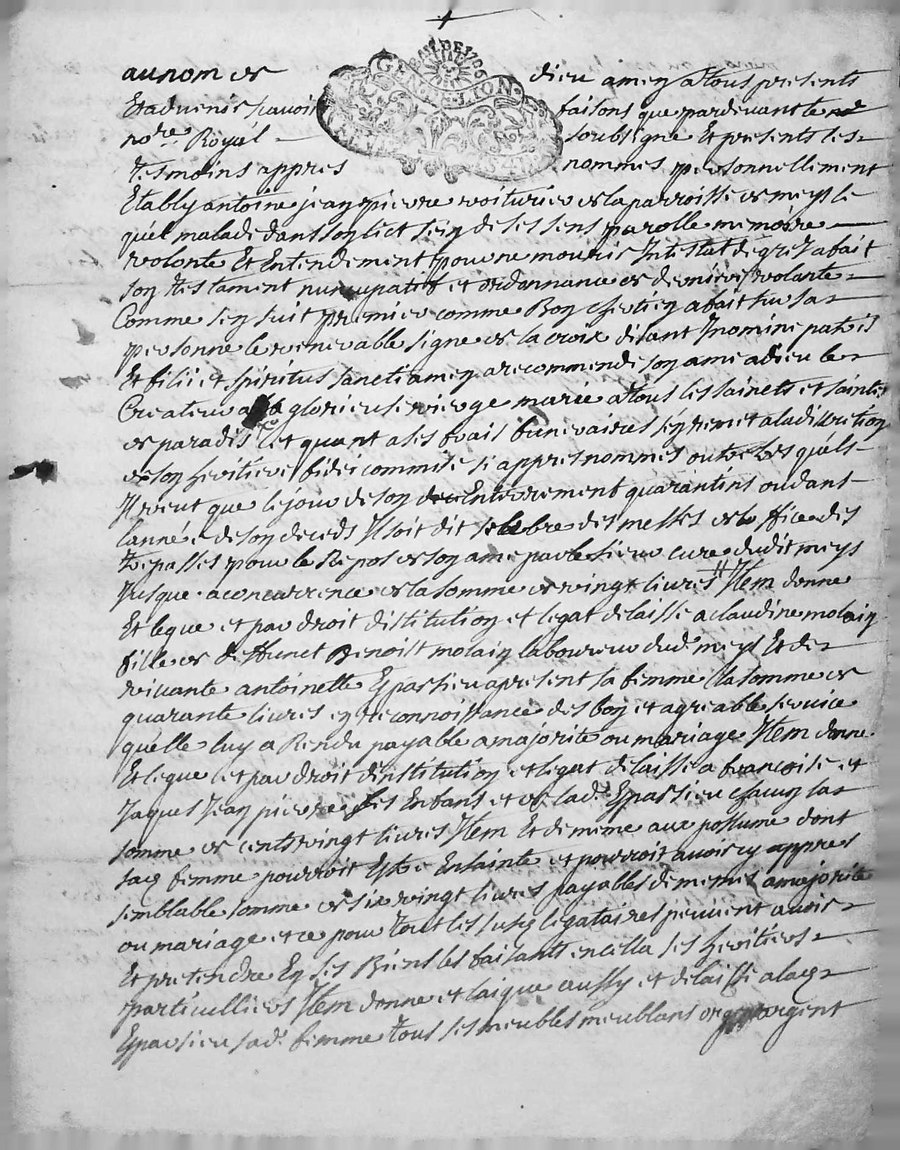 au nom de dieu amen a tous presents
Et advenir scavoir faisons que pardevant le
no.re Royal soubsigne Et presents les
tesmoins appres nommes personnellement
Estably antoine jean pierre voiturier de la parroisse de meys le
quel malade dans son lict sein de ses sens parolle memoire
volonte Et Entendement pour ne mourir Intestat de gre a fait
son testament nuncupatif et ordonnance de derniere volonte
Comme sen suit premier comme Bon chretien a fait sur sa
personne le venerable signe de la croix disant In nomine patris
Et filii et spiritus sancti amen a recommende son ame a dieu le
Createur a la glorieuse vierge marie a tous les saincts et saintes
de paradis Et quant a ses frais funeraires sen remet a la discretion
de son heritiere fideicommise si appres nommes outre Les quels
Il veut que le jour de son Enterrement quarantins ou dans
lannee de son deceds Il soit dit selebre des messes de loffice des
trepasses pour le Repos de son ame par le sieur cure dudit meys
Jusque a concurrence de la somme de vingt livres Item donne
Et legue et par droit distitution et legat delaisse a claudine molain
fille de deffunct Benoist molain laboureur dud. meys Et de
vivante antoinette Eparsieu a present sa femme la somme de
quarante livres en reconnoissance des bon et agreable service
quelle luy a Rendu payable a majorite ou mariage Item donne
Et legue et par droit dinstitution et legat delaisse a francoise et
Jaques Jean pierre ses Enfans et de lad. Eparsieu chacun la
somme de cents vingt livres Item Et de meme aux postume dont
sad. femme pourroit Estre Enfainte et pourroit avoir cy appres
semblable somme de six vingt livres payables de memes a majorite
ou mariage et ce pour tout les susd. legataires peuvent avoir
Et pretendre En ses Biens les faisants en cella ses heritiers
particulliers Item donne et laigue aussy et delaisse a lad.
Eparsieu sad. femme tous ses meubles meublans or argent